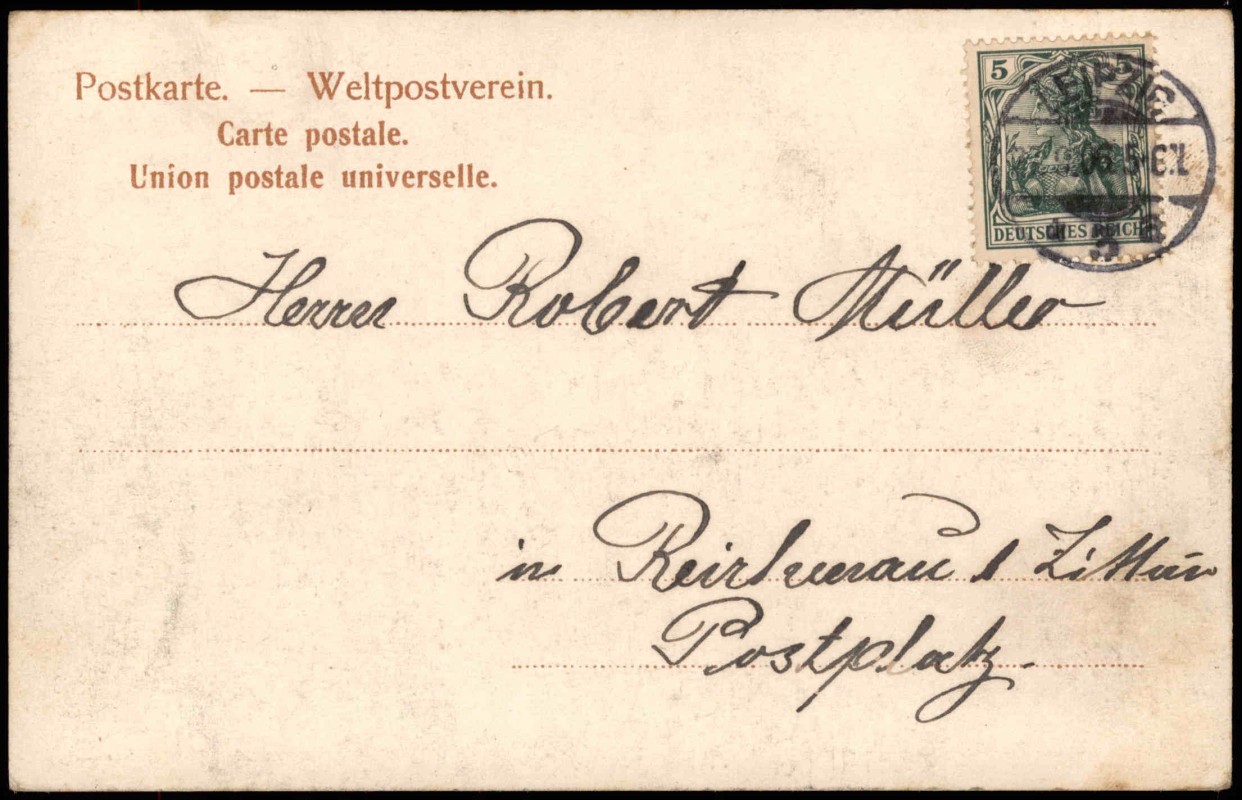 Postkarte. — Weltpostverein.
Carte postale.
Union postale universelle.
5 5
LEIPZIG
06.5-6.N.
5
DEUTSCHES REICH
Herrn Robert Müller
in Reichenau b Zittau
Postplatz.